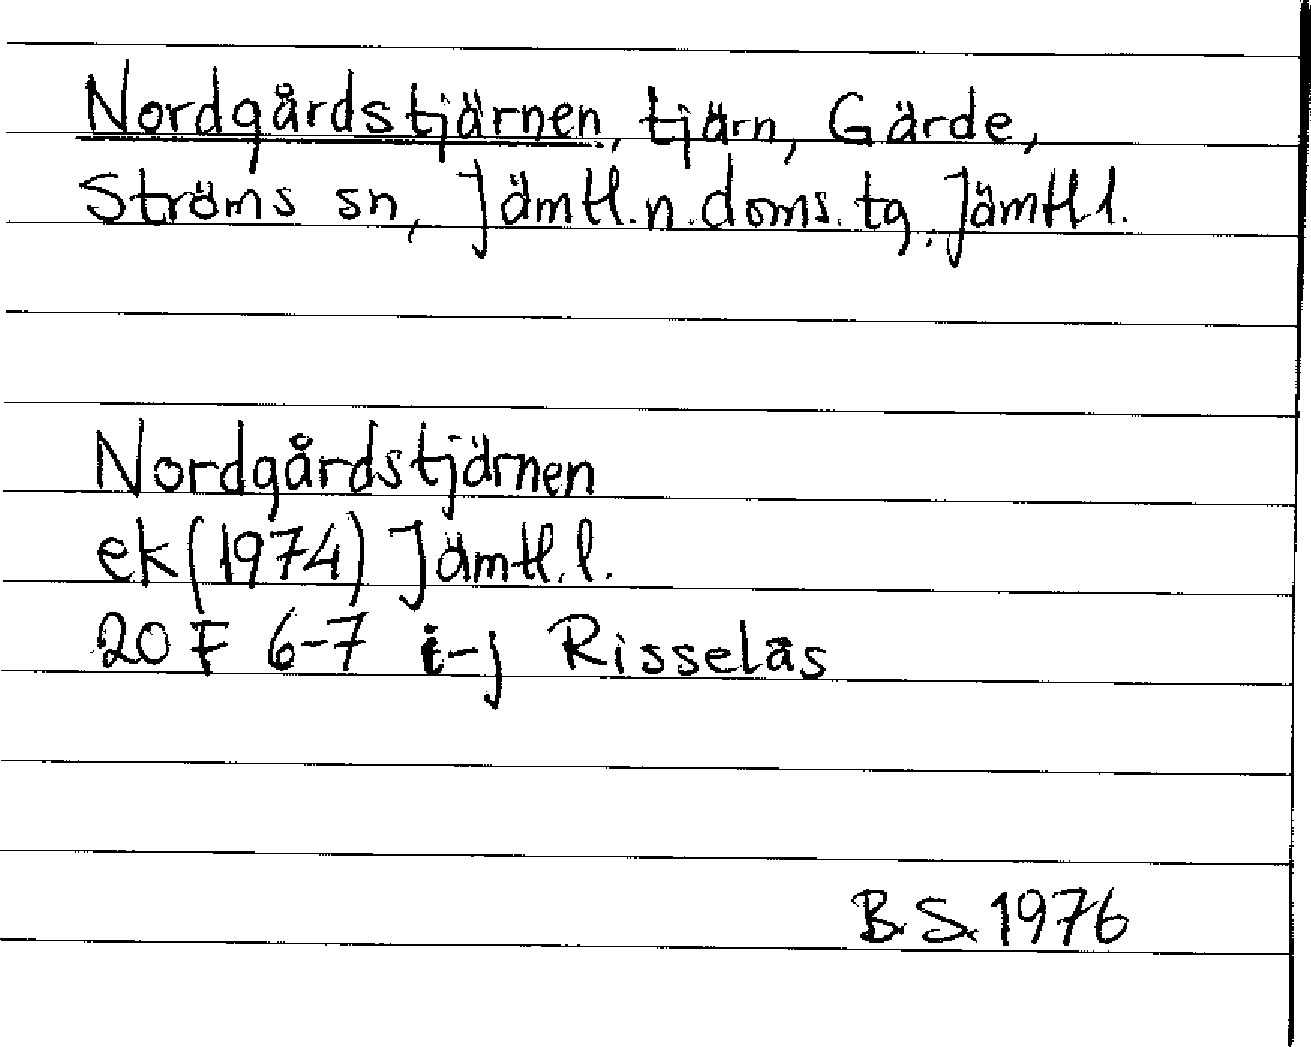 Nordgårdstjärnen, tjärn, Gärde,
Ströms sn, Jämtl. n. doms. tg, Jämtl l.
Nordgårdstjärnen
ek (1974) Jämtl. l.
20 F 6-7 i-j Risselås
B.S. 1976